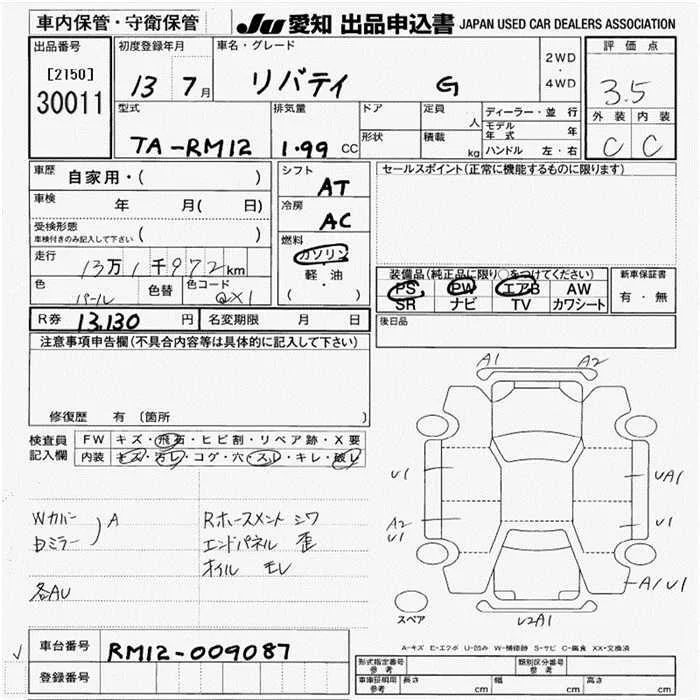 車内保管・守衛保管
JU 愛知 出品申込書 JAPAN USED CAR DEALERS ASSOCIATION
出品番号
[2150]
30011
初度登録年月
13 7月
車名・グレード
リバティ G
2WD
・
4WD
評価点
3.5
外装 内装
C C
型式
TA-RM12
排気量
1.99 CC
ドア
形状
定員
人
積載
kg
ディーラー・並行
モデル年式 年
ハンドル 左・右
車歴 自家用・( )
車検 年 月( 日)
受検形態
車検付きのみ記入して下さい ( )
走行
13万1千972km
色
パール
色替
色コード
QX1
シフト
AT
冷房
AC
燃料
ガソリン
・
軽・油
( )
セールスポイント(正常に機能するものに限ります)
装備品(純正品に限り○をつけてください)
PS PW エアB AW
SR ナビ TV カワシート
新車保証書
有・無
R券 13,130 円
名変期限 月 日
後日品
注意事項申告欄(不具合内容等は具体的に記入して下さい)
修復歴 有(箇所 )
検査員
記入欄
FW キズ・飛石・ヒビ割・リペア跡・X要
内装 キズ・汚レ・コゲ・穴・スレ・キレ・破レ
Wカバー
Dミラー ) A
各AU
Rホースメント シワ
エンドパネル 歪
オイル モレ
A1 A2
U1 UA1
A2 U1
U1
A1U1
U2A1
スペア
A-キズ E-エクボ U-凹み W-補修跡 S-サビ C-腐食 XX-交換済
車台番号 RM12-009087
登録番号
形式指定番号
参考
類別区分番号
参考
車庫証明用
参考
長さ cm 幅 cm 高さ cm